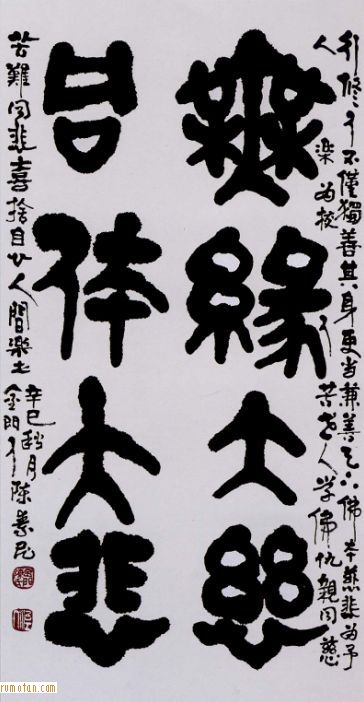 修行不僅獨善其身更當兼善天下佛慈悲為予
人樂為拔苦人學佛親同慈
無緣大慈
同体大悲
苦難同悲喜捨自在人間樂土
辛巳秋月
金門陳
rumotan.com